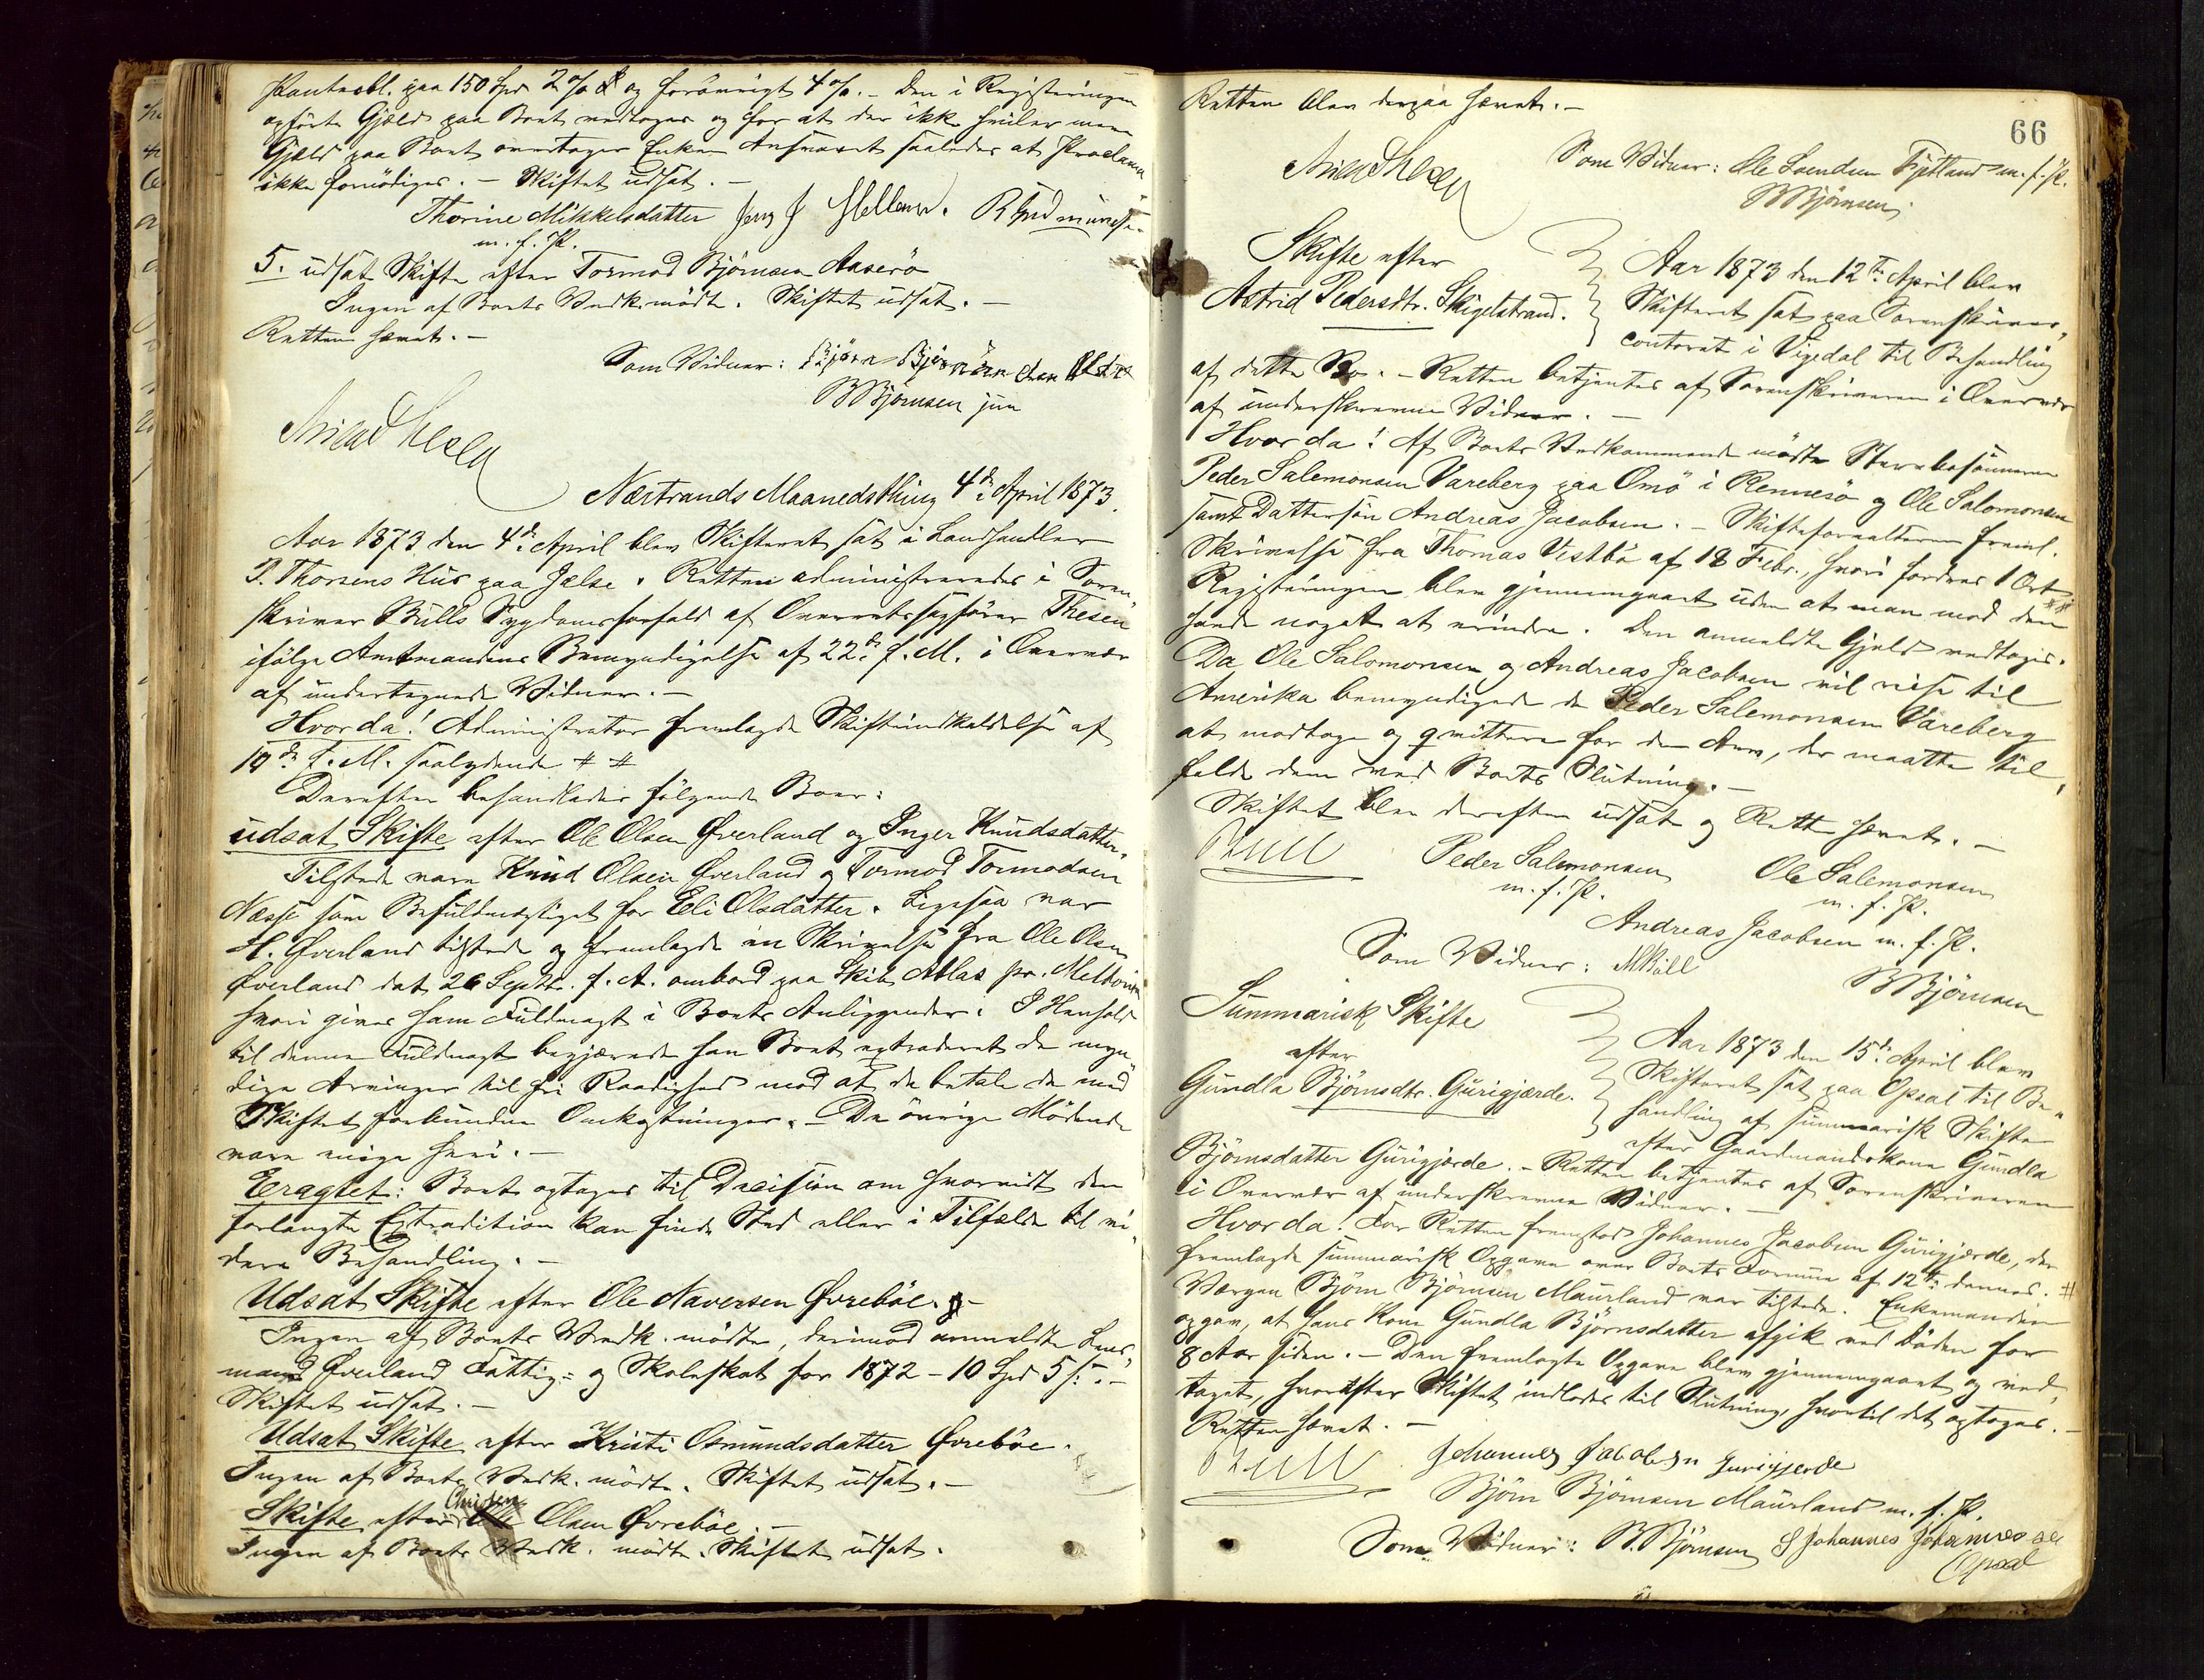 Panteobl. paa 150 Spd 2 % og forövrigt 4 %. – Den i Registeringen
opförte Gjæld paa Boet vedtoges og for at der ikke hviler mere
Gjæld paa Boet overtager Enken Ansvaret saaledes at Proclama
ikke fornödiges. – Skiftet udsat. –
Thorine Mikkelsdatter
m. f. P.
5. udsat Skifte efter Tormod Björnsen Aaserö
Ingen af Boets Vedk. mödte. Skiftet udsat. –
Retten hævet. –
Som Vidner: Björn Björnsen
B Björnsen jun
Nerstrands Maanedsthing 4de April 1873.
Aar 1873 den 4de April blev Skifteret sat i Landhandler
P. Thorsens Hus paa Jelse. Retten administreredes i Soren„
skriver Bulls Sygdomsforfald af Overretssagförer Thesen
ifölge Amtmandens Bemyndigelse af 22de f. M. i Overvær
af undertegnede Vidner. –
Hvor da! Administrator fremlagde Skifteindkaldelse af
19de f. M. saalydende # #
Derefter behandledes fölgende Boer:
udsat Skifte efter Ole Olsen Øverland og Inger Knudsdatter.
Tilstede vare Knud Olsen Øverland og Tormod Tormodsen
Nesse som Befuldmægtiget for Eli Olsdatter. Ligesaa var
H. Øverland tilstede og fremlagde en Skrivelse fra Ole Olsen
Øverland dat. 26 Septbr. f. A. ombord paa Skib Atlas pr.
hvori gives ham Fuldmagt i Boets Anliggender. I Henhold
til denne Fuldmagt begjærede han Boet extraderet de myn„
dige Arvinger til fri Raadighed mod at de betale de med
Skiftet forbundne Omkostninger. – De övrige Mödende
vare enige heri. –
Eragtet: Boet optages til Decision om hvorvidt den
forlangte Extradition kan finde Sted eller i Tilfælde til vi„
dere Behandling. –
Udsat Skifte efter Ole Aaversen Øvreböe. –
Ingen af Boets Vedk. mödte, derimod anmeldte Lens„
mand Øverland Fattig- og Skoleskat for 1872 – 10 Spd 5 s. –
Skiftet udsat. –
Udsat Skifte efter Kristi Osmundsdatter Øvreböe.
Ingen af Boets Vedk. mödte. Skiftet udsat. –
Skifte efter Christen Olsen Øvreböe. –
Ingen af Boets Vedk. mödte. Skiftet udsat.
66
Retten blev derpaa hævet. –
Som Vidner: Ole Svendsen Fjetland m. f. P.
B Björnsen
Skifte efter
Astrid Pedersdtr. Skigelstrand.
Aar 1873 den 12te April blev
Skifteret sat paa Sorenskriver„
contoret i Vigedal til Behandling
af dette Bo. – Retten betjentes af Sorenskriveren i Overvær
af underskrevne Vidner. –
Hvor da! Af Boets Vedkommende mödte Stervbosönnerne
Peder Salemonsen Vareberg paa Omö i Rennesö og Ole Salomonsen
samt Dattersön Andreas Jacobsen. – Skifteforvalteren freml.
Skrivelse fra Thomas Vestbö af 18 Febr., hvori fordres 1 Ort. ##
Registeringen blev gjennemgaaet uden at man mod den
havde noget at erindre. Den anmeldte Gjeld vedtoges.
Da Ole Salomonsen og Andreas Jacobsen vil reise til
Amerika bemyndigede de Peder Salemonsen Vareberg
at modtage og qvittere for den Arv, der maatte til„
falde dem ved Boets Slutning. –
Skiftet blev derefter udsat og Retten hævet. –
Bull
Peder Salemonsen
m. f. P.
Ole Salemonsen
m. f. P.
Andreas Jacobsen m. f. P.
Som Vidner: MBull
B Björnsen
Summarisk Skifte
efter
Gundla Björnsdtr. Gurigjærde.
Aar 1873 den 15de April blev
Skifteret sat paa Opsal til Be„
handling af summarisk Skifte
efter Gaardmandskone Gundla
Björnsdatter Gurigjærde. – Retten betjentes af Sorenskriveren
i Overvær af underskrevne Vidner. –
Hvor da! For Retten fremstod Johannes Jacobsen Gurigjærde, der
fremlagde summarisk Opgave over Boets Formue af 12te dennes. #
Værgen Björn Björnsen Maurland var tilstede. Enkemanden
opgav, at hans Kone Gundla Björnsdatter afgik ved Döden for
8 Aar siden. – Den fremlagte Opgave blev gjennemgaaet og ved„
taget, hvorefter Skiftet indlodes til Slutning, hvortil det optoges. –
Retten hævet. –
Bull
Johannes Jacobsen Gurigjerde
Björn Björnsen Maurland m. f. P.
Som Vidner: B. Björnsen Johannes Johannesen
Opsal